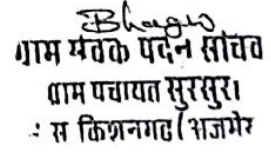 Bhagw
ग्राम सेवक पदेन सचिव
ग्राम पंचायत सुरसुरा
स किशनगढ (अजमेर